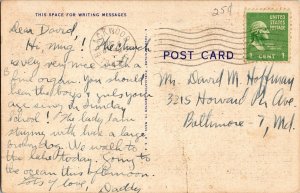 25¢
THIS SPACE FOR WRITING MESSAGES
POST CARD
UNITED STATES
1 CENT 1
Dear David,
Hi, mug! The church
is very nice with a
fine organ. You should
hear the boys & girls your
age sing in Sunday
school! The lady I am
staying with has a large
dog. We walk to
the lake today. Going to
the ocean this afternoon.
Lots of love,
Daddy
Mr. David M. Hoffman
3215 Howard Pk Ave.
Baltimore - 7, Md.